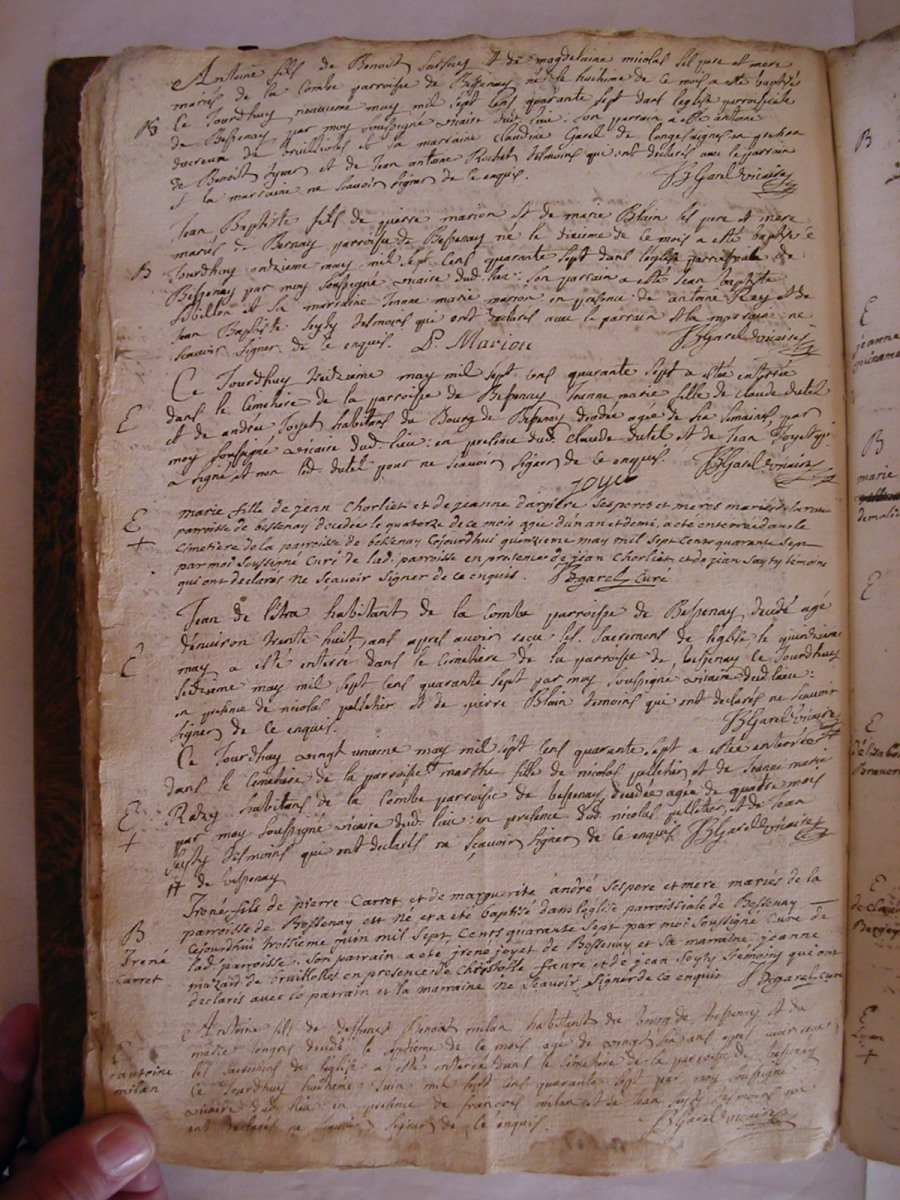 Antoine fils de Benoit et de magdelaine micolas ses pere et mere
mariés de la Combe parroisse de Bessenay né le huitieme de ce mois a esté baptisé
B Ce Jourdhuy neuvieme may mil sept cens quarante sept dans leglise parroissiale
de Bessenay par moy soussigné vicaire dud. lieu : son parrain a esté antoine
ducreux de brullioles et sa marraine claudine Garel de longesaignes en presence
de Benoit et de Jean antoine tesmoins qui ont declarés avec le parrain
et la marraine ne scavoir signer de ce enquis. JB Garel vicaire
Jean Baptiste fils de pierre marion et de marie Blain ses pere et mere
mariés de Bernay parroisse de Bessenay né le dixieme de ce mois a esté baptisé
B Jourdhuy onzieme may mil sept cens quarante sept dans leglise parroissiale de
Bessenay par moy soussigné vicaire dud. lieu : son parrain a esté Jean baptiste
et sa marraine Jeanne marie marion en presence de antoine Rey et de
Jean Baptiste Soyty tesmoins qui ont declarés avec le parrain et la marraine ne
scavoir signer de ce enquis. P. Marion JB Garel vicaire
Ce Jourdhuy treizieme may mil sept cens quarante sept a estée enterrée
E dans le Cemetiere de la parroisse de Bessenay Jeanne marie fille de claude dutel
et de andrée Joyet habitans du Bourg de Bessenay decedée agée de six semaines, par
moy soussigné vicaire dud. lieu : en presence dud. claude dutel et de Jean Joyet qui
a signé et non led. dutel pour ne scavoir signer de ce enquis. JB Garel vicaire
joyet
E marie fille de jean chorliet et de jeanne dargere ses peres et meres mariés de la
+ parroisse de bessenay decedée le quatorze de ce mois agée d'un an et demi, a eté enterrée dans le
cimetiere de la parroisse de bessenay cejourdhui quinzieme may mil sept cents quarante sept
par moi soussigné curé de lad. parroisse en presences de jean chorliet et de jean soyty temoins
qui ont declarés ne scavoir signer de ce enquis. JB garel curé
Jean de l'stra habitant de la combe parroisse de Bessenay decedé agé
d'environ trente huit ans apres avoir reçu les sacremens de leglise le quinzieme
E may a esté enterré dans le Cemetiere de la parroisse de bessenay ce Jourdhuy
seizieme may mil sept cens quarante sept par moy soussigné vicaire dud. lieu :
en presence de nicolas pelletier et de pierre Blain temoins qui ont declarés ne scavoir
signer de ce enquis. JB Garel vicaire
Ce Jourdhuy vingt unieme may mil sept cens quarante sept a estée enterrée
dans le Cemetiere de la parroisse # marthe fille de nicolas pelletier et de Jeanne marie
E habitans de la Combe parroisse de bessenay decedée agée de quatre mois
+ par moy soussigné vicaire dud. lieu : en presence dud. nicolas pelletier et de Jean
Soyty tesmoins qui ont declarés ne scavoir signer de ce enquis. JB Garel vicaire
# de bessenay
Irené fils de pierre Carret et de marguerite andré ses pere et mere mariés de la
B parroisse de Bessenay est né et a eté baptisé dans leglise parroissiale de Bessenay
Irené Cejourdhui troisieme juin mil sept cents quarante sept par moi soussigné Curé de
Carret lad. parroisse : son parrain a eté irené joyet de Bessenay et sa marraine jeanne
mazard de brullioles en presence de christofle faure et de jean soyty temoins qui ont
declarés avec le parrain et la marraine ne scavoir signer de ce enquis JB garel curé
Antoine fils de deffunct Benoit milan habitant du bourg de bessenay et de
marie decedé le septieme de ce mois agé de vingt six ans apres avoir reçu
antoine les sacremens de leglise a esté enterré dans le Cemetiere de la parroisse de bessenay
milan Ce Jourdhuy huitieme Juin mil sept cens quarante sept par moy soussigné
vicaire dud. lieu en presence de françois milan et de Jean soyty tesmoins qui
ont declarés ne scavoir signer de ce enquis. JB Garel vicaire
B
E
jeanne
B
marie
E
E
E
de claud
E
+